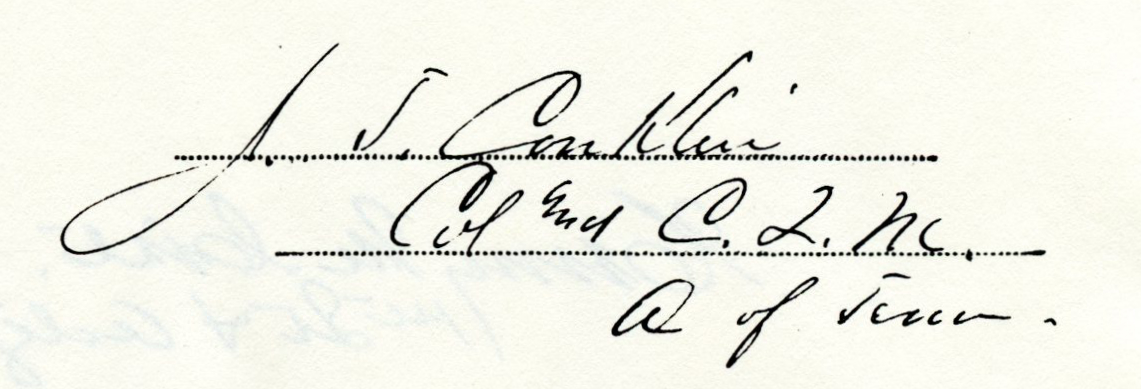 J. T. Conklin
Col and C. Q. M.
A of Tenn.